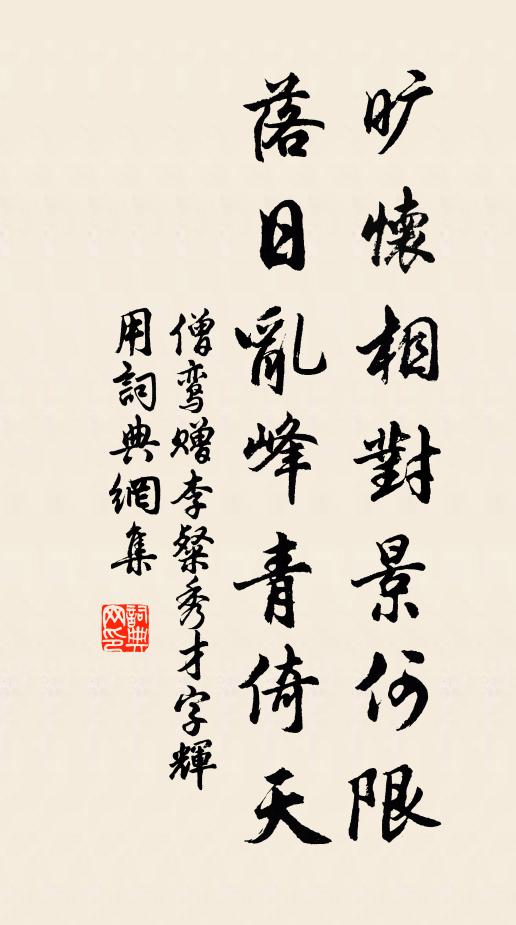 旷懷相對景何限
落日亂峰青倚天
僧鸾赠李粲秀才字輝
用詞典網集
詞典网印